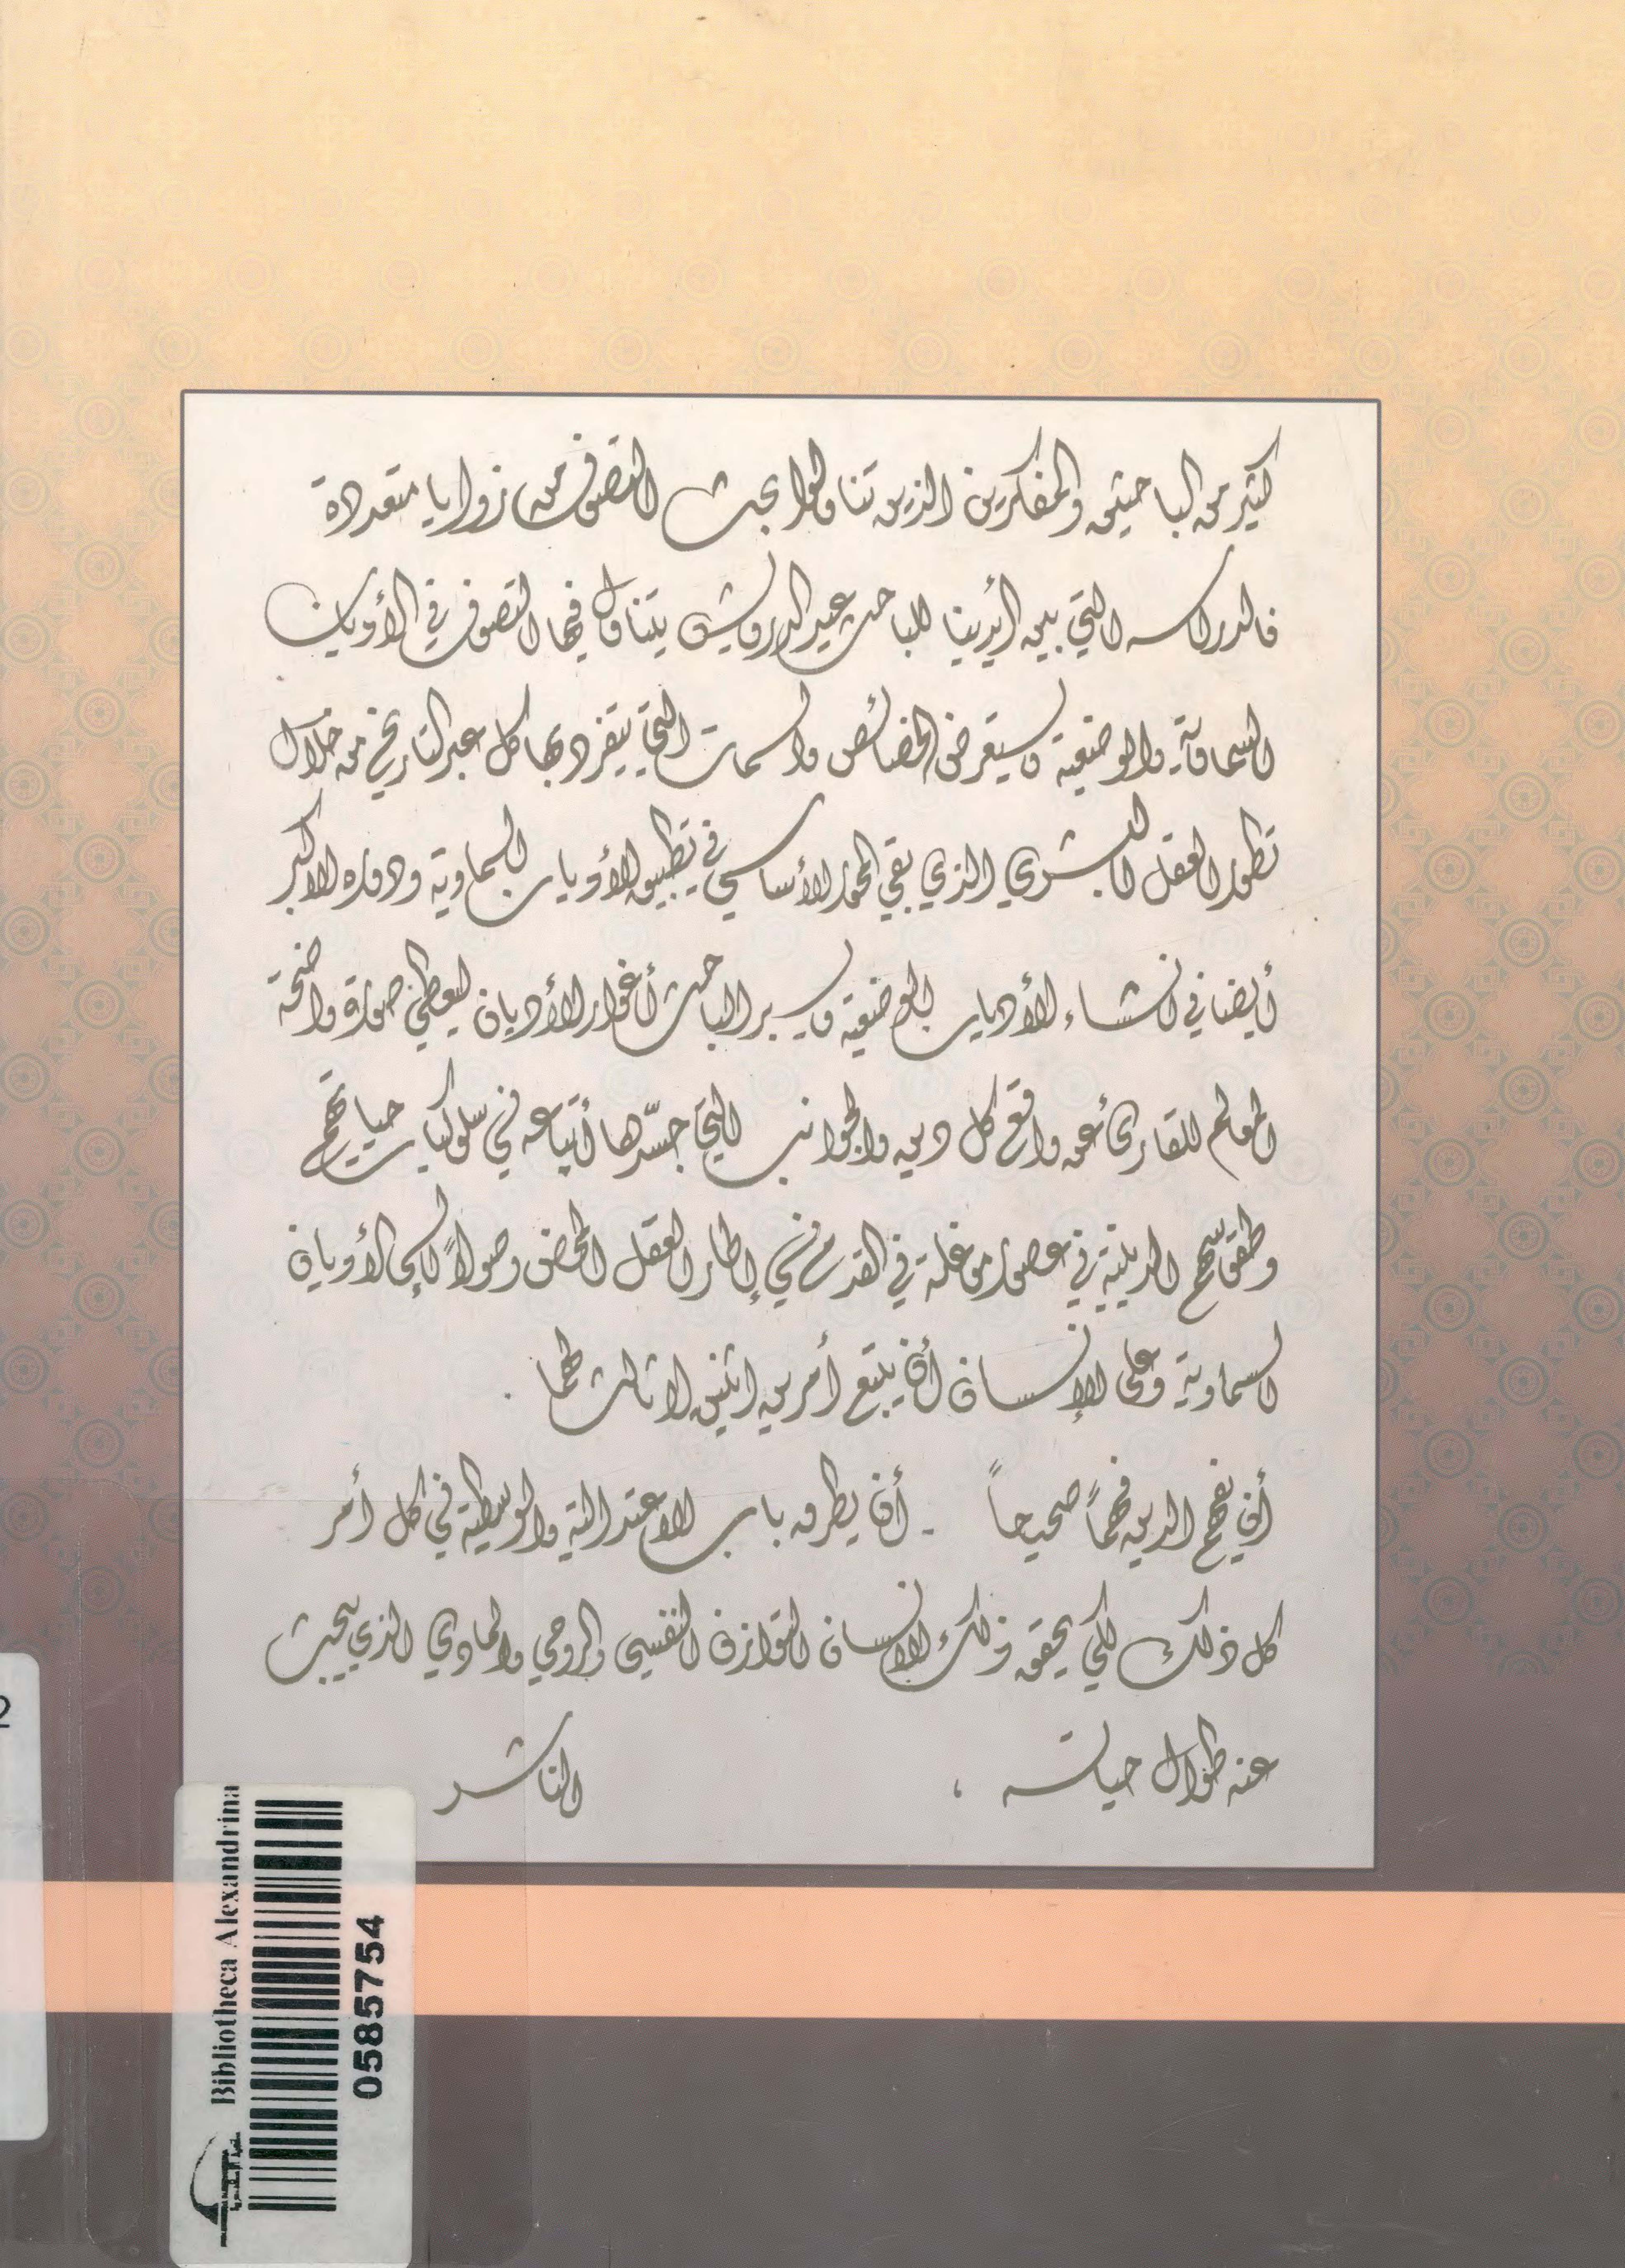 كثير من الباحثين والمفكرين الذين تناولوا بحث التصوف من زوايا متعددة
فالدراسه التي بين أيدينا للباحث عيد الدرويش يتناول فيها التصوف في الأديان
السماوية والوضعية ويستعرض الخصائص والسمات التي يتفرد بها كل عبر التاريخ من خلال
تطور العقل البشري الذي بقي المحور الأساسي في تطبيق الأديان السماوية ودوره الاكبر
أيضا في انشاء الأديان الوضعية ويسبر الباحث أغوار الأديان ليعطي صورة واضحة
المعالم للقارئ عن واقع كل دين والجوانب التي جسّدها أتباعه في سلوكيات حياتهم
وطقوسهم الدينية في عصور موغلة في القدم في إطار العقل المحض وصولاً إلى الأديان
السماوية وعلى الإنسان أن يتبع أمرين اثنين لا ثالث لهما .
أن يفهم الدين فهماً صحيحاً - أن يطرق باب الاعتدالية والوسطية في كل أمر
كل ذلك لكي يحقق ذلك الانسان التوازن النفسي والروحي والمادي الذي يبحث
عنه طوال حياته ،
الناشر
Bibliotheca Alexandrina
0585754
2